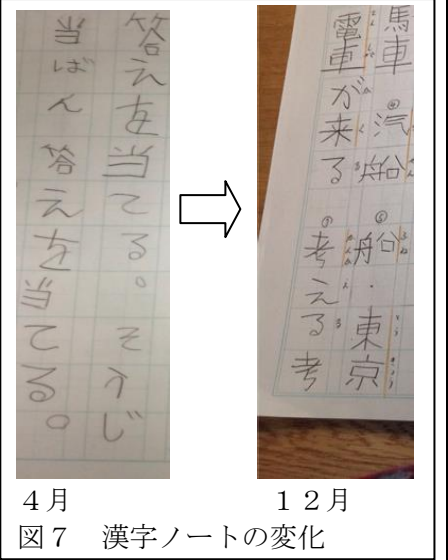 答えを当てる。そうじ
当ばん 答えを当てる。
馬車 ④汽船 ⑥船・東京
電車が来る 考える考
4月
12月
図7 漢字ノートの変化